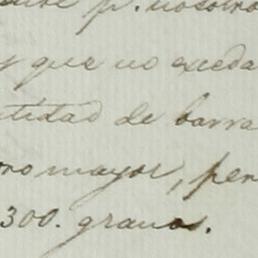 p. nosotro
y que no exceda
ntidad de barra
ro mayor, per
300. granos.